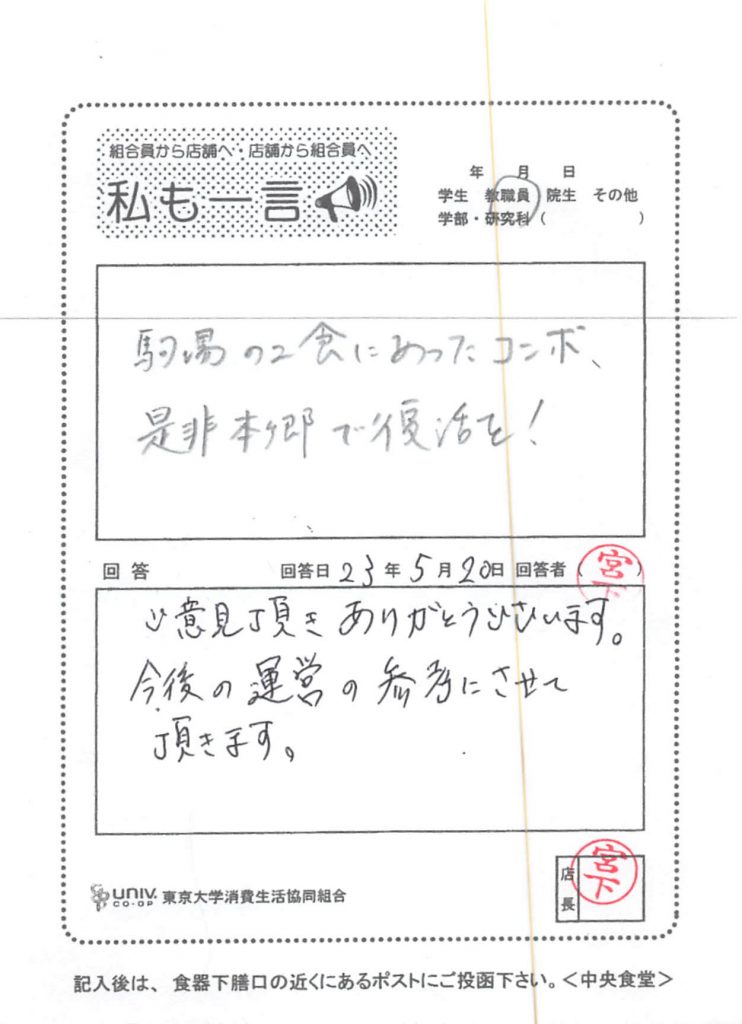 組合員から店舗へ・店舗から組合員へ
私も一言
年 月 日
学生 教職員 院生 その他
学部・研究科( )
駒場の2食にあったコンボ、
是非本郷で復活を!
回答 回答日 23年5月20日 回答者( 宮下 )
ご意見頂きありがとうございます。
今後の運営の参考にさせて
頂きます。
UNIV. CO-OP 東京大学消費生活協同組合
店長 宮下
記入後は、食器下膳口の近くにあるポストにご投函下さい。<中央食堂>